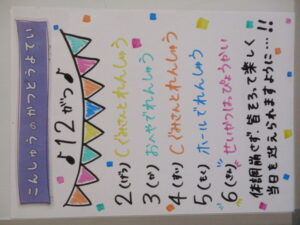 こんしゅうのかつどうよてい
♪12がつ♪
2(げつ) Cぐみさんとれんしゅう
3(か) おへやでれんしゅう
4(すい) Cぐみさんとれんしゅう
5(もく) ホールでれんしゅう
6(きん) せいかつはっぴょうかい
体調崩さず、皆そろって楽しく
当日を迎えられますように…!!